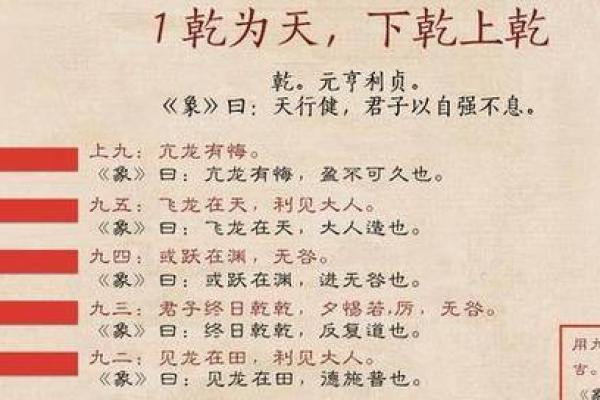 1乾为天，下乾上乾
乾。元亨利贞。
《象》曰：天行健，君子以自强不息。
上九：亢龙有悔。
《象》曰：亢龙有悔，盈不可久也。
九五：飞龙在天，利见大人。
《象》曰：飞龙在天，大人造也。
九四：或跃在渊，无咎。
《象》曰：或跃在渊，进无咎也。
九三：君子终日乾乾，夕惕若,厉，无咎。
《象》曰：终日乾乾，反复道也。
九二：见龙在田，利见大人。
《象》曰：见龙在田，德施普也。
用九
吉。
《象